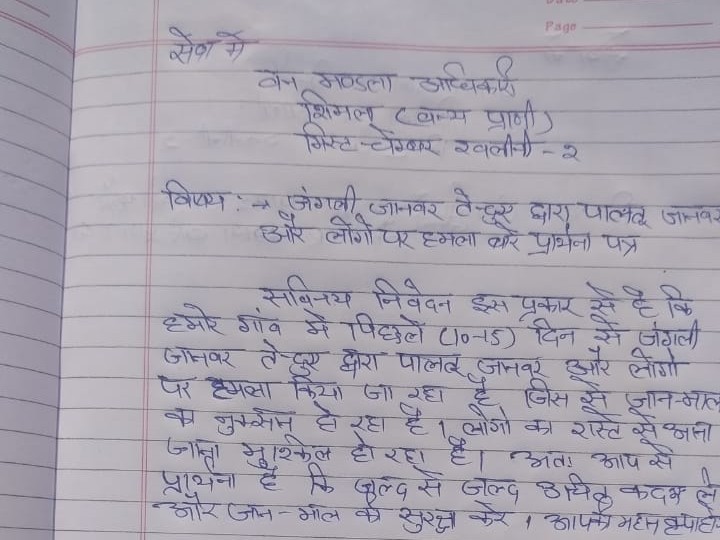 Page
सेवा में
वन मण्डला अधिकारी
शिमला (वन्य प्राणी)
मिस्ट चेम्बर खलीनी - २
विषय :→ जंगली जानवर तेन्दुए द्वारा पालतू जानवर
और लोगों पर हमला बारे प्रार्थना पत्र
सविनय निवेदन इस प्रकार से है कि
हमारे गांव में पिछले (10-15) दिन से जंगली
जानवर तेन्दुए द्वारा पालतू जानवर और लोगों
पर हमला किया जा रहा है जिस से जान-माल
का नुक्सान हो रहा है। लोगों का रास्ते से आना
जाना मुश्किल हो रहा है। अतः आप से
प्रार्थना है कि जल्द से जल्द उचित कदम ले
और जान-माल की सुरक्षा करें। आपकी महान